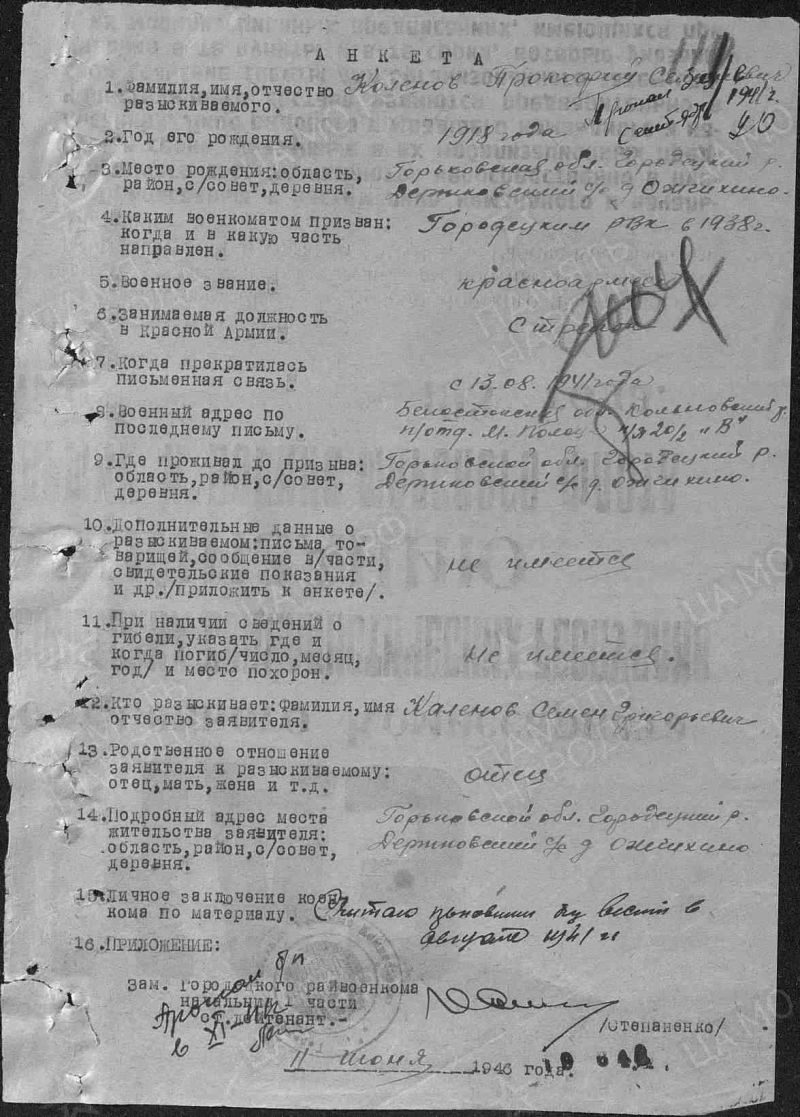 АНКЕТА
1. Фамилия, имя, отчество Каленов Прокофий Семенович
разыскиваемого. Пропал 1941 г.
2. Год его рождения. 1918 года
3. Место рождения: область, Горьковская обл. Городецкий р.
район, с/совет, деревня. с/с д. Ожгихино.
4. Каким военкоматом призван: Городецким РВК в 1938 г.
когда и в какую часть
направлен.
5. Военное звание. красноармеец
6. Занимаемая должность Стрелок
в Красной Армии.
7. Когда прекратилась
письменная связь. с 13.08. 1941 года
8. Военный адрес по Белостокская обл.
последнему письму. п/отд. М. п/я 20/2 "В"
9. Где проживал до призыва: Горьковской обл. Городецкий р.
область, район, с/совет, с/с д. Ожгихино.
деревня.
10. Дополнительные данные о
разыскиваемом: письма то-
варищей, сообщение в/части, не имеется
свидетельские показания
и др. /приложить к анкете/.
11. При наличии сведений о
гибели, указать где и
когда погиб /число, месяц, не имеется.
год/ и место похорон.
12. Кто разыскивает: фамилия, имя Каленов Семен Григорьевич
отчество заявителя.
13. Родственное отношение
заявителя к разыскиваемому: отец
отец, мать, жена и т.д.
14. Подробный адрес места Горьковской обл. Городецкий р.
жительства заявителя: с/с д Ожгихино
область, район, с/совет,
деревня.
15. Личное заключение воен
кома по материалу. Считаю пропавшим без вести в
августе 1941 г.
16. ПРИЛОЖЕНИЕ:
Зам. Городецкого райвоенкома
начальник 1 части
ст. лейтенант.-
/Степаненко/
11 июня 1946 года.